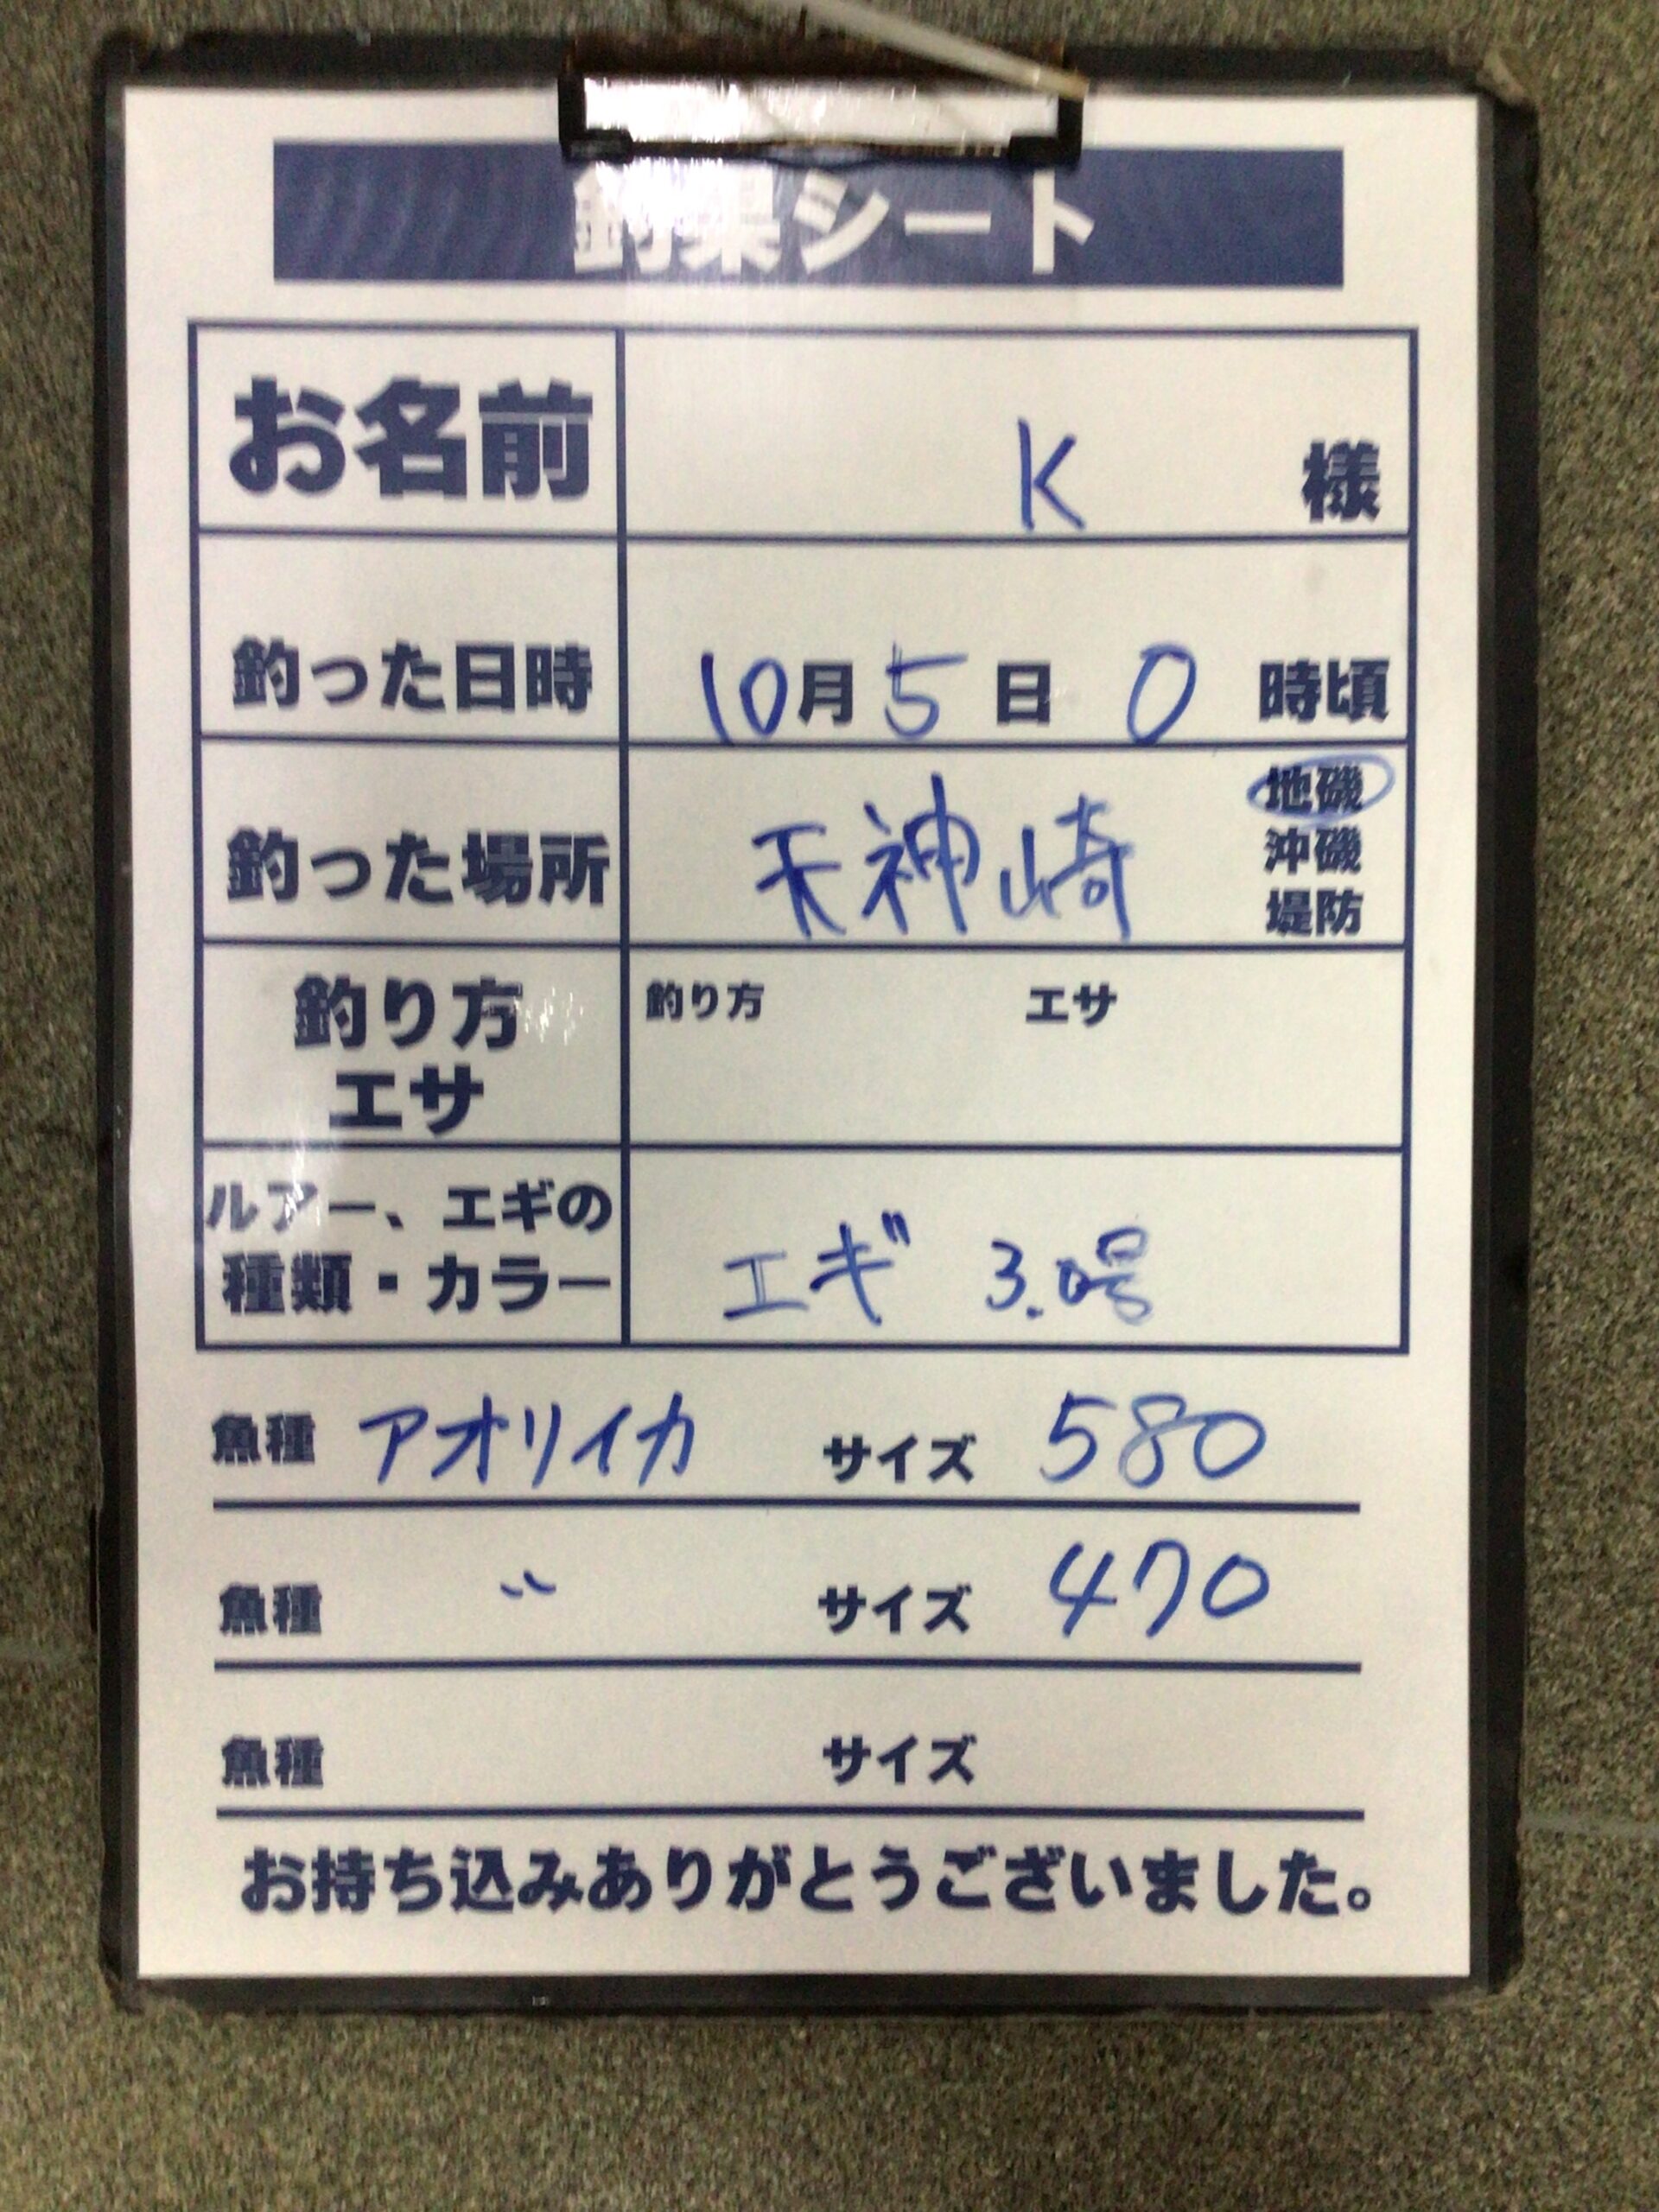 釣果シート
お名前 K 様
釣った日時 10月5日 0時頃
釣った場所 天神崎 地磯 沖磯 堤防
釣り方 エサ 釣り方 エサ
ルアー、エギの種類・カラー エギ 3.0号
魚種 アオリイカ サイズ 580
魚種 〃 サイズ 470
魚種 サイズ
お持ち込みありがとうございました。